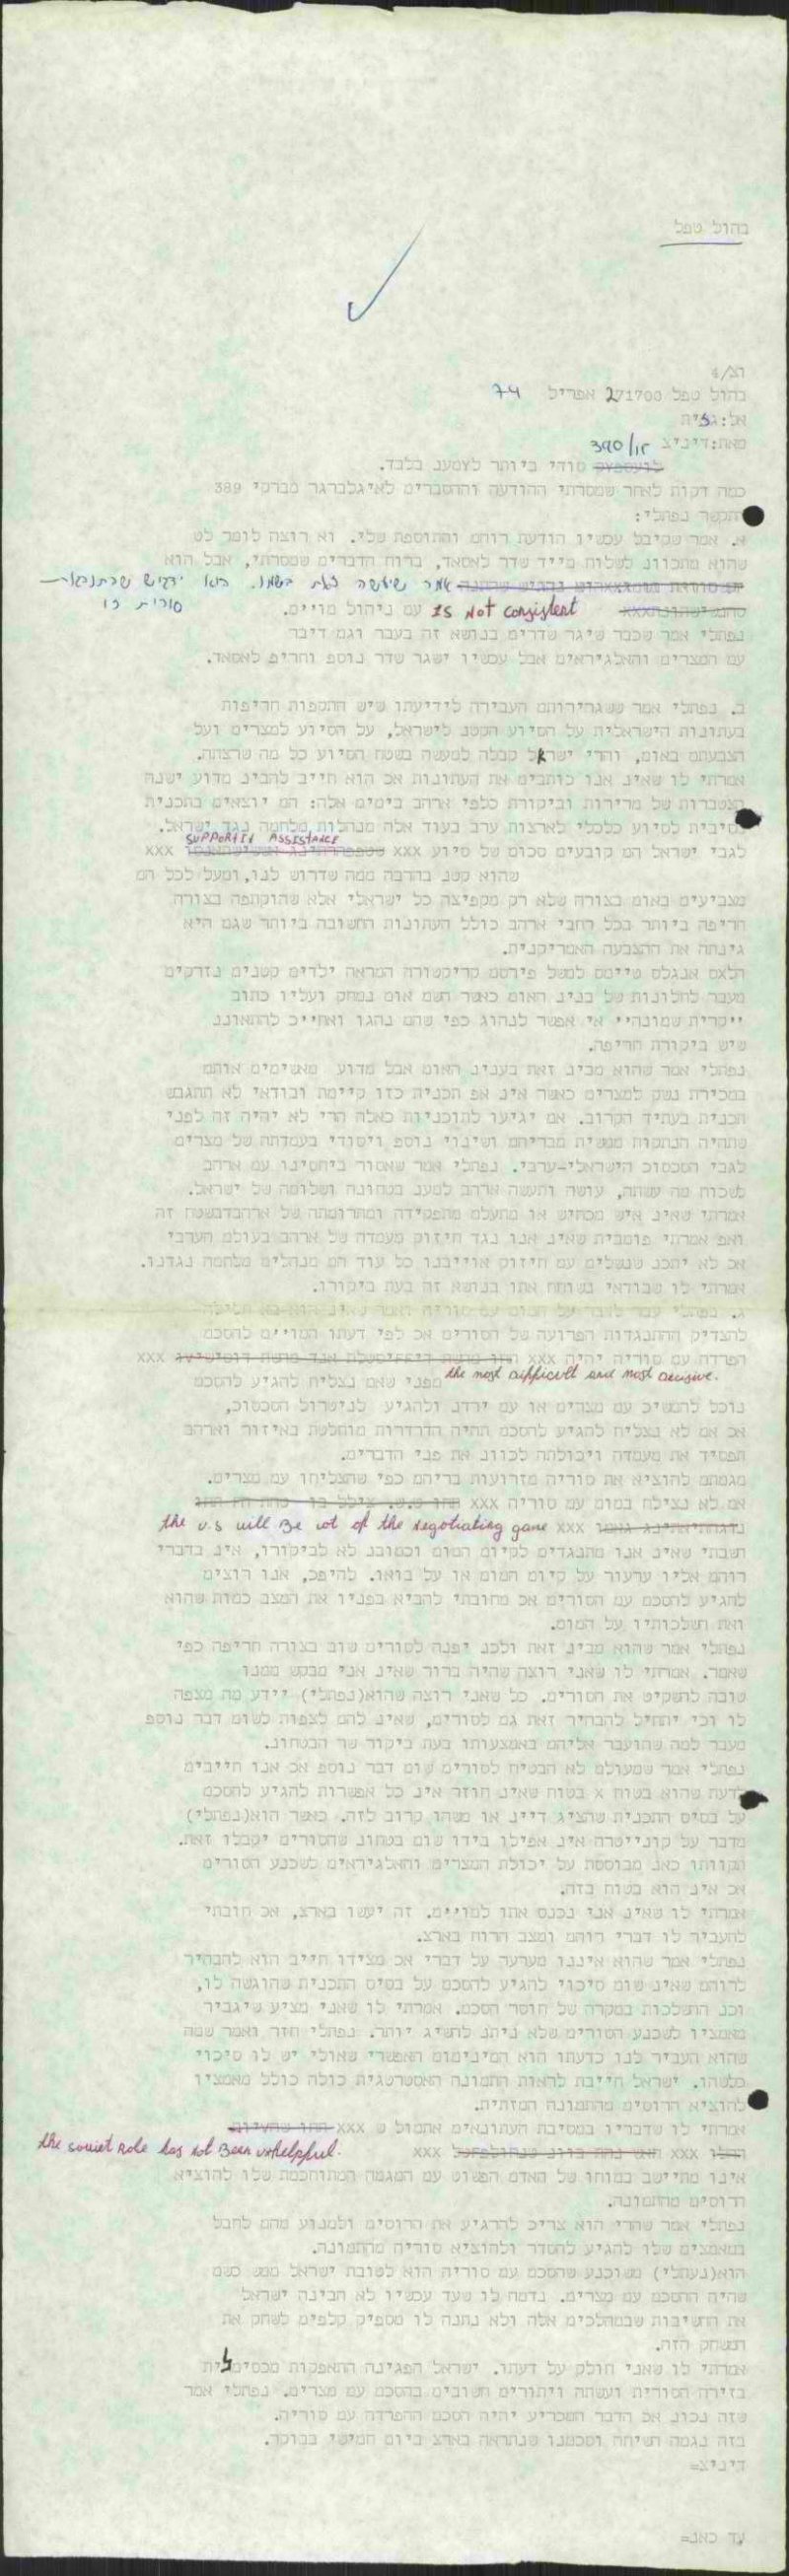 בהול טפל
וצ/4
בהול טפל 271700 אפריל 74
אל: גזית
מאת: דיניץ 390/יג
סודי ביותר למען בלבד.
כמה דקות לאחר שמסרתי ההודעה וההסברים לאיגלברגר מברקי 389
התקשר נפתלי:
א. אמר שקיבל עכשיו הודעת רוהם והתוספת שלי. הוא רוצה לומר לט
שהוא מתכוון לשלוח מייד שדר לאסאד, ברוח הדברים שמסרתי, אבל הוא
אמר שיעשה זאת בשמו. הוא ידגיש שהתנהגות סורית זו
is not consistent עם ניהול מויים.
נפתלי אמר שכבר שיגר שדרים בנושא זה בעבר וגם דיבר
עם המצרים והאלגיראים אבל עכשיו ישגר שדר נוסף וחריף לאסאד.
ב. נפתלי אמר ששגרירותם העבירה לידיעתו שיש התקפות חריפות
בעתונות הישראלית על הסיוע הקטן לישראל, על הסיוע למצרים ועל
הצבעתם באום, והרי ישראל קבלה למעשה בשטח הסיוע כל מה שרצתה.
אמרתי לו שאין אנו כותבים את העתונות אך הוא חייב להבין מדוע ישנה
הצטברות של מרירות וביקורת כלפי ארהב בימים אלה: הם יוצאים בתכנית
מסיבית לסיוע כלכלי לארצות ערב בעוד אלה מנהלות מלחמה נגד ישראל.
לגבי ישראל הם קובעים סכום של סיוע XXX SUPPORTED ASSISTANCE XXX
שהוא קטן בהרבה ממה שדרוש לנו, ומעל לכל הם
מצביעים באום בצורה שלא רק מקפיצה כל ישראלי אלא שהוקתפה בצורה
חריפה ביותר בכל רחבי ארהב כולל העתונות החשובה ביותר שגם היא
גינתה את ההצבעה האמריקנית.
הלוס אנגלס טיימס למשל פירסם קריקטורה המראה ילדים קטנים נזרקים
מעבר לחלונות של בנין האום כאשר השם אום נמחק ועליו כתוב
ייקרית שמונהיי אי אפשר לנהוג כפי שהם נהגו ואחייכ להתאונן
שיש ביקורת חריפה.
נפתלי אמר שהוא מבין זאת בענין האום אבל מדוע מאשימים אותם
במכירת נשק למצרים כאשר אין אף תכנית כזו קיימת ובודאי לא תתגבש
תכנית בעתיד הקרוב. אם יגיעו לתוכניות כאלה הרי לא יהיה זה לפני
שתהיה הנתקות ממשית מבריהם ושינוי נוסף ויסודי בעמדתה של מצרים
לגבי הסכסוך הישראלי-ערבי. נפתלי אמר שאסור ביחסינו עם ארהב
לשכוח מה עשתה, עושה ותעשה ארהב למען בטחונה ושלומה של ישראל.
אמרתי שאין איש מכחיש או מתעלם מתפקידה ומתרומתה של ארהבבשטח זה
ואף אמרתי פומבית שאין אנו נגד חיזוק מעמדה של ארהב בעולם הערבי
אך לא יתכן שנשלים עם חיזוק אוייבינו כל עוד הם מנהלים מלחמה נגדנו.
אמרתי לו שבודאי נשוחח אתו בנושא זה בעת ביקורו.
ג. נפתלי עבר לדבר על המום עם סוריה ואמר שאין הוא בא חלילה
להצדיק ההתנגדות הפרועה של הסורים אך לפי דעתו המויים להסכם
הפרדה עם סוריה יהיה XXX the most difficult and most decisive. XXX
מפני שאם נצליח להגיע להסכם
נוכל להמשיך עם מצרים או עם ירדן ולהגיע לנישרול הסכסוך,
אך אם לא נצליח להגיע להסכם תהיה הדרדרות מוחלטת באיזור וארהב
תפסיד את מעמדה ויכולתה לכוון את פני הדברים.
מגמתם להוציא את סוריה מזרועות בריהם כפי שהצליחו עם מצרים.
אם לא נצליח במום עם סוריה XXX
the U.S will Be out of the negotiating game XXX
חשבתי שאין אנו מתנגדים לקיום המום וכמובן לא לביקורו, אין בדברי
רוהם אליו ערעור על קיום המום או על בואו. להיפך, אנו רוצים
להגיע להסכם עם הסורים אך מחובתי להביא בפניו את המצב כמות שהוא
ואת השלכותיו על המום.
נפתלי אמר שהוא מבין זאת ולכן יפנה לסורים שוב בצורה חריפה כפי
שאמר. אמרתי לו שאני רוצה שהיה ברור שאין אני מבקש ממנו
טובה להשקיט את הסורים. כל שאני רוצה שהוא(נפתלי) יידע מה מצפה
לו וכי יתחיל להבהיר זאת גם לסורים, שאין להם לצפות לשום דבר נוסף
מעבר למה שהועבר אליהם באמצעותו בעת ביקור שר הבטחון.
נפתלי אמר שמעולם לא הבטיח לסורים שום דבר נוסף אך אנו חייבים
לדעת שהוא בטוח X בטוח שאין חוזר אין כל אפשרות להגיע להסכם
על בסיס התכנית שהציג דיין או משהו קרוב לזה. כאשר הוא(נפתלי)
מדבר על קונייטרה אין אפילו בידו שום בטחון שהסורים יקבלו זאת.
תקוותו כאן מבוססת על יכולת המצרים והאלגיראים לשכנע הסורים
אך אין הוא בטוח בזה.
אמרתי לו שאין אני נכנס אתו למויים. זה יעשו בארצ, אך חובתי
להעביר לו דברי רוהם ומצב הרוח בארצ.
נפתלי אמר שהוא איננו מערער על דברי אך מצידו חייב הוא להבהיר
לרוהם שאין שום סיכוי להגיע להסכם על בסיס התכנית שהוגשה לו,
וכן ההשלכות במקרה של חוסר הסכם. אמרתי לו שאני מציע שיגביר
מאמציו לשכנע הסורים שלא ניתן להשיג יותר. נפתלי חזר ואמר שמה
שהוא העביר לנו כדעתו הוא המינימום האפשרי שאולי יש לו סיכוי
כלשהו. ישראל חייבת לראות התמונה האסטרטגית כולה כולל מאמציו
להוציא הרוסים מהתמונה המזתית.
אמרתי לו שדבריו במסיבת העתונאים אתמול ש XXX
the soviet role has not Been unhelpful. XXX
אינו מתיישב במוחו של האדם הפשוט עם המגמה המתוחכמת שלו להוציא
הרוסים מהתמונה.
נפתלי אמר שהרי הוא צריך להרגיע את הרוסים ולמנוע מהם לחבל
במאמצים שלו להגיע להסדר ולהוציא סוריה מהתמונה.
הוא(נפתלי) משוכנע שהסכם עם סוריה הוא לטובת ישראל ממש כשם
שהיה ההסכם עם מצרים. נדמה לו שעד עכשיו לא הבינה ישראל
את החשיבות שבמהלכים אלה ולא נתנה לו מספיק קלפים לשחק את
המשחק הזה.
אמרתי לו שאני חולק על דעתו. ישראל הפגינה התאפקות מכסימלית
בזירה הסורית ועשתה ויתורים חשובים בהסכם עם מצרים. נפתלי אמר
שזה נכון אך הדבר המכריע יהיה הסכם ההפרדה עם סוריה.
בזה נגמה השיחה וסכמנו שנתראה בארצ ביום חמישי בבוקר.
דיניצ=
עד כאן=